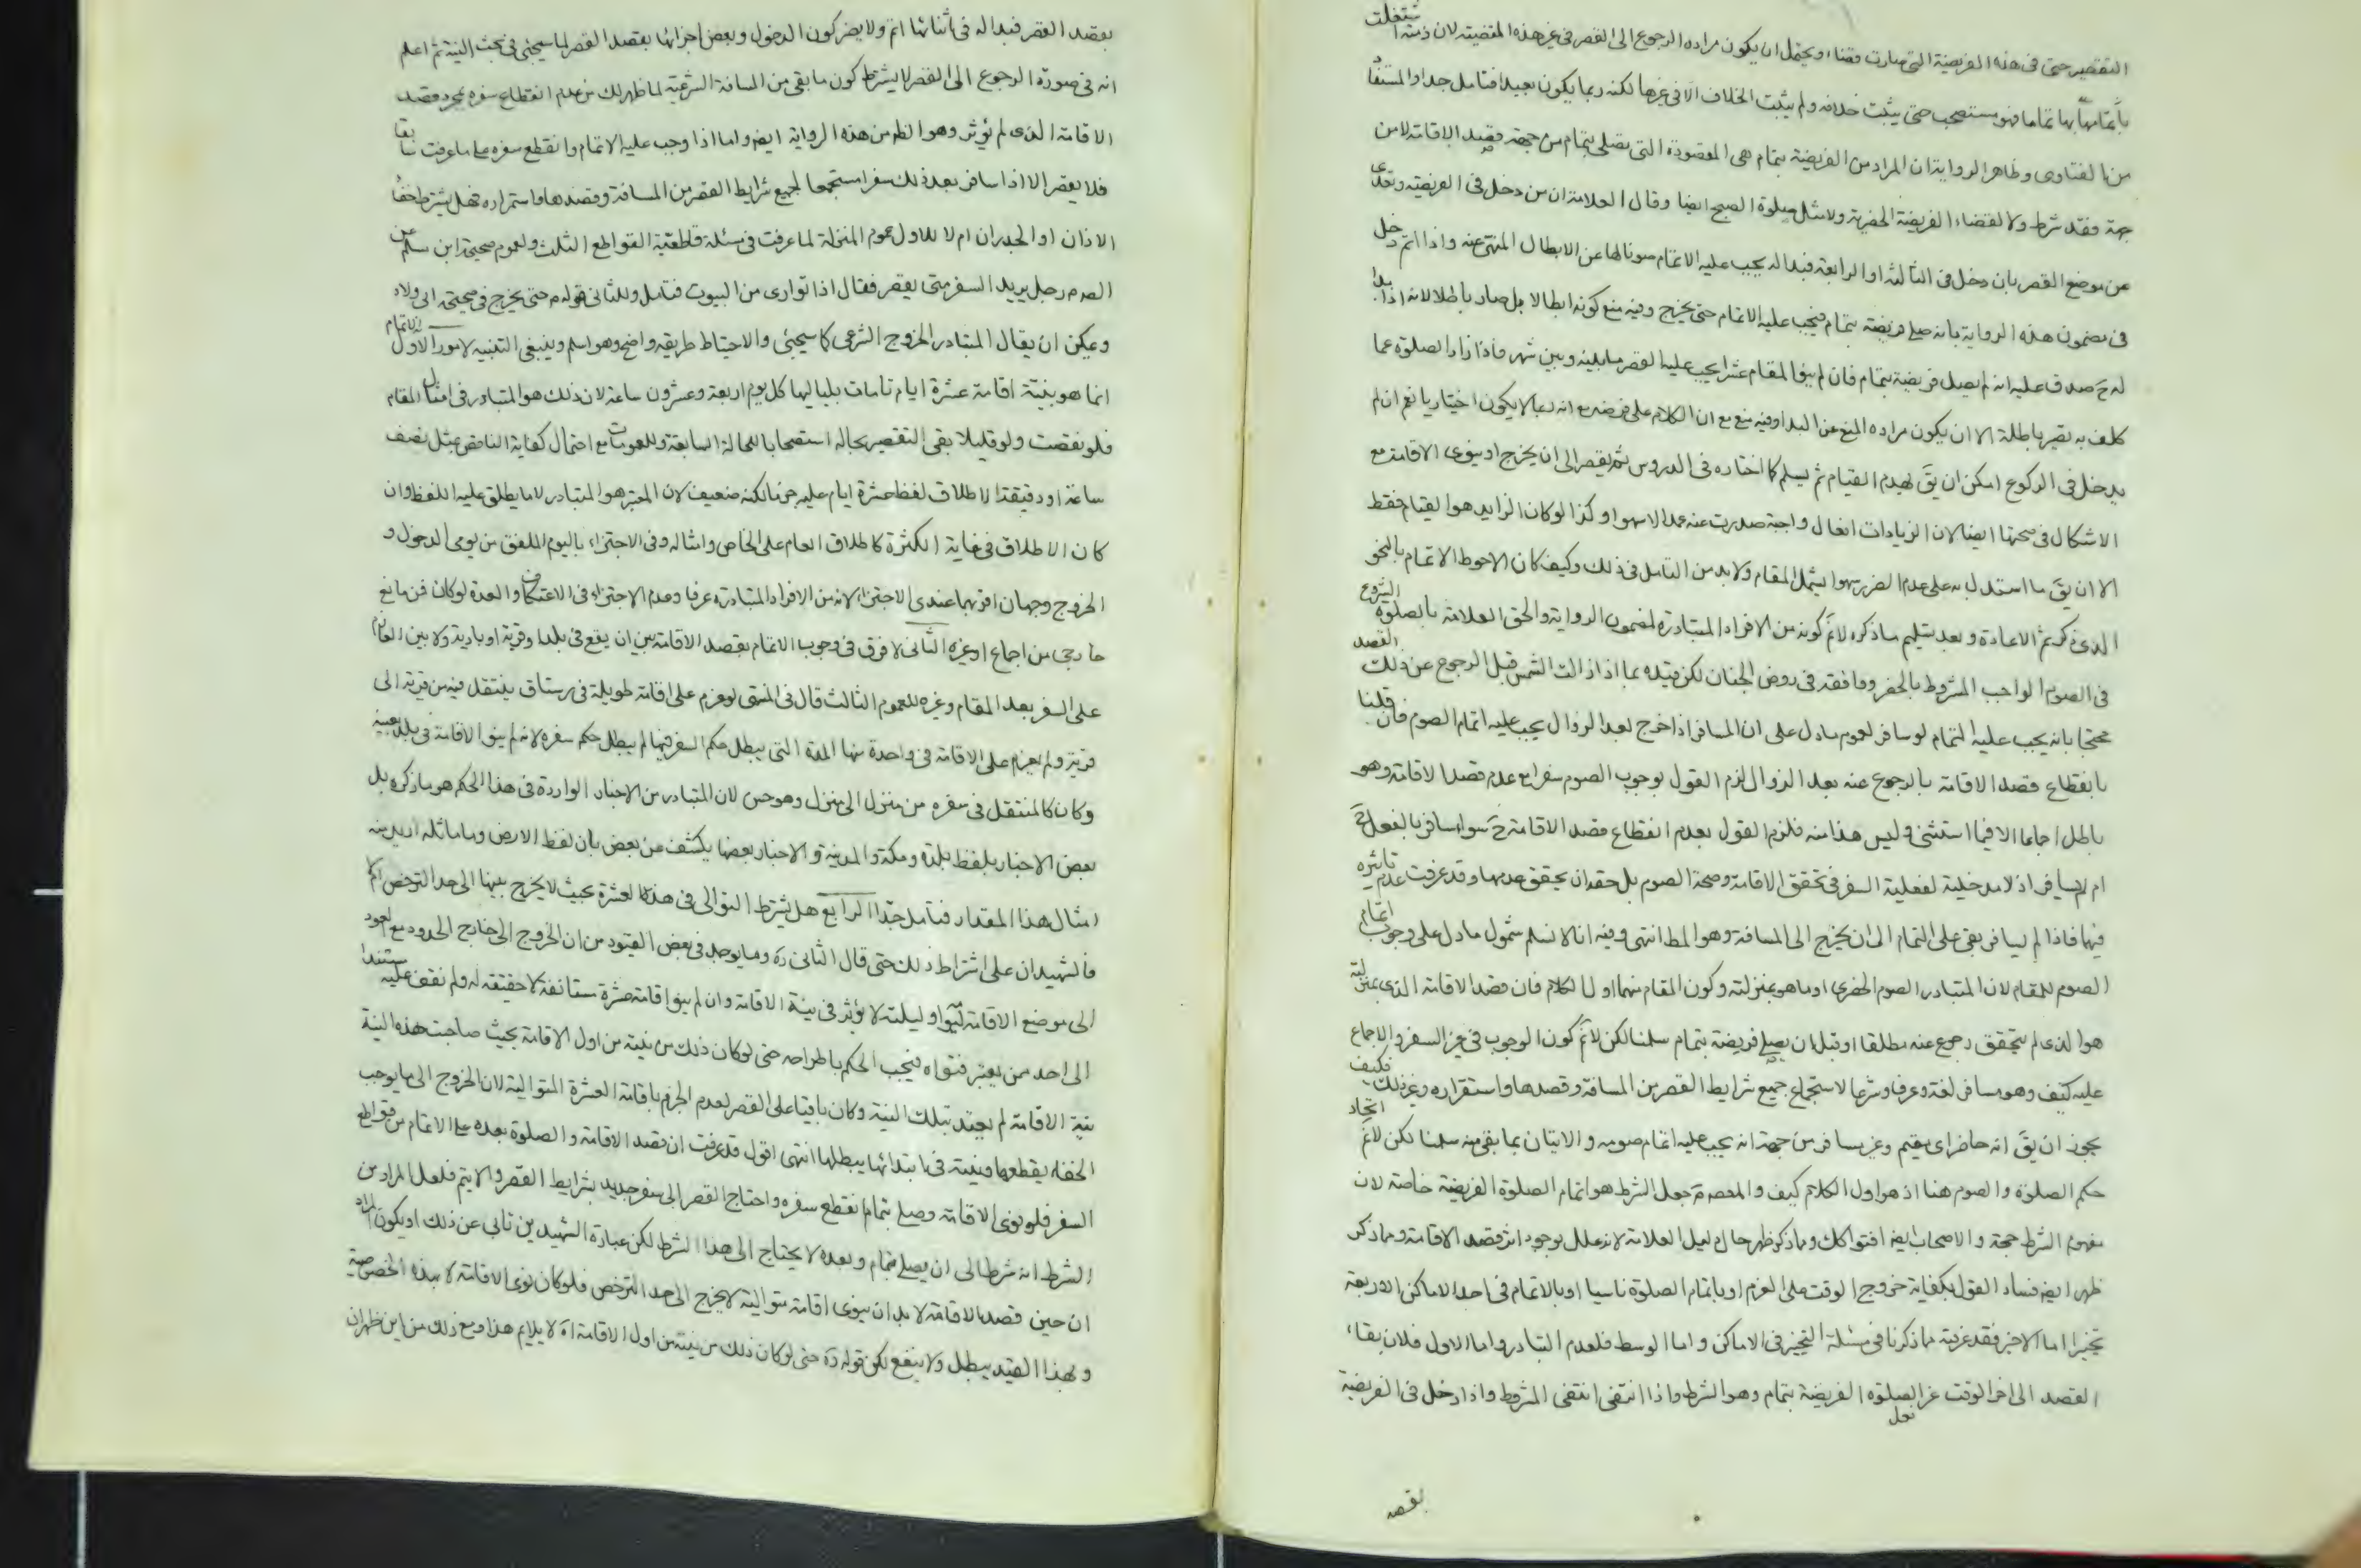 التقصير حتى فى هذه الفريضة التى صارت قضاء ويحتمل ان يكون مراده الرجوع الى القصر فى غير هذه المقضية لان ذمته اشتغلت
باتمامها تماما فهو مستصحب حتى يثبت خلافه ولم يثبت الخلاف الا فى غيرها لكنه ربما يكون بعيدا فتامل جدا والمستفا
من الفتاوى وظاهر الرواية ان المراد من الفريضة بتمام هى المقصودة التى يصلى بتمام من جهة قصد الاقامة لا من
جهة فقد شرط ولا لقضاء الفريضة الحضرية ولا مثل صلوة الصبح ايضا وقال العلامة ان من دخل فى الفريضة وتعدى
عن موضع القصر بان دخل فى الثالثة او الرابعة فبدا له يجب عليه الاتمام صونا لها عن الابطال المنهى عنه واذا اتم دخل
فى مضمون هذه الرواية بانه صلى فريضة بتمام فيجب عليه الاتمام حتى يخرج وفيه منع كونه ابطالا بل صار باطلا لانه اذا بدا
له ح صدق عليه انه لم يصل فريضة بتمام فان لم ينو المقام عشرا يجب عليه القصر ما بينه وبين شهر فاذا زاد الصلوة عما
كلف به تصير باطلة الا ان يكون مراده المنع عن البدا وفيه منع مع ان الكلام على فرضه مع انه ربما لا يكون اختياريا نعم ان لم
يدخل فى الركوع امكن ان يق يهدم القيام ثم يسلم كما اختاره فى الدروس ثم يقصر الى ان يخرج او ينوى الاقامة مع
الاشكال فى صحتها ايضا لان الزيادات افعال واجبة صدرت عنه عمدا لا سهوا وكذا لو كان الزايد هو القيام فقط
الا ان يق ما استدل به على عدم الضرر سهوا يشمل المقام ولا بد من التامل فى ذلك وكيف كان الاحوط الاتمام بالنحو
الذى ذكر ثم الاعادة وبعد تسليم ما ذكره لا نم كونه من الافراد المتبادرة لمضمون الرواية والحق العلامة بالصلوة الشروع
فى الصوم الواجب المشروط بالحضر ووافقه فى روض الجنان لكن قيده بما اذا زالت الشمس قبل الرجوع عن ذلك القصد
محتجا بانه يجب عليه التمام لو سافر لعموم ما دل على ان المسافر اذا خرج بعد الزوال يجب عليه اتمام الصوم فان قلنا
بانقطاع قصد الاقامة بالرجوع عنه بعد الزوال لزم القول بوجوب الصوم سفرا مع عدم قصد الاقامة وهو
باطل اجماعا الا فيما استثنى وليس هذا منه فلزم القول بعدم انقطاع قصد الاقامة ح سواء سافر بالفعل ح
ام لم يسافر اذ لا مدخلية لفعلية السفر فى تحقق الاقامة وصحة الصوم بل حقه ان يحقق عدمها وقد عرفت عدم تاثيره
فيها فاذا لم يسافر بقى على التمام الى ان يخرج الى المسافة وهو المط انتهى وفيه انا لا نسلم شمول ما دل على وجوب اتمام
الصوم للمقام لان المتبادر الصوم الحضرى او ما هو بمنزلته وكون المقام منهما اول الكلام فان قصد الاقامة الذى بمنزلته
هو الذى لم يتحقق رجوع عنه مطلقا او قبل ان يصلى فريضة بتمام سلمنا لكن لا نم كون الوجوب فى غير السفر والاجماع
عليه كيف وهو مسافر لغة وعرفا وشرعا لاستجماع جميع شرايط القصر من المسافة وقصدها واستقراره وغير ذلك فكيف
يجوز ان يق انه حاضر اى مقيم وغير مسافر من جهة انه يجب عليه اتمام صومه والاتيان بما بقى منه سلمنا لكن لا نم اتحاد
حكم الصلوة والصوم هنا اذ هو اول الكلام كيف والمعصوم ع جعل الشرط هو اتمام الصلوة الفريضة خاصة لان
مفهوم الشرط حجة والاصحاب ايضا افتوا كك وما ذكر ظهر حال دليل العلامة لانه علل بوجود اثر قصد الاقامة ومما ذكر
ظهر ايضا فساد القول بكفاية خروج الوقت على العزم او باتمام الصلوة ناسيا او بالاتمام فى احد الاماكن الاربعة
تخييرا اما الاخير فقد عرفته مما ذكرنا فى مسئلة التخيير فى الاماكن واما الوسط فلعدم التبادر واما الاول فلان بقاء
القصد الى اخر الوقت غير الصلوة الفريضة بتمام وهو الشرط واذا انتفى انتفى المشروط واذا دخل فى الفريضة
بقصد
بقصد القصر فبدا له فى اثنائها اتم ولا يضر كون الدخول وبعض اجزائها بقصد القصر لما سيجئ فى بحث النية ثم اعلم
انه فى صورة الرجوع الى القصر لا يشترط كون ما بقى من المسافة الشرعية لما ظهر لك من عدم انقطاع سفره بمجرد قصد
الاقامة الذى لم يؤثر وهو الظ من هذه الرواية ايضا واما اذا وجب عليه الاتمام وانقطع سفره على ما عرفت سابقا
فلا يقصر الا اذا سافر بعد ذلك سفرا مستجمعا لجميع شرايط القصر من المسافة وقصدها واستمراره فهل يشترط خفا
الاذان او الجدران ام لا للاول عموم المنزلة لما عرفت فى مسئلة قاطعية القواطع الثلث ولعموم صحيحة ابن مسلم عن
الص م رجل يريد السفر متى يقصر فقال اذا توارى من البيوت فتامل وللثانى قوله م حتى يخرج فى صحيحة ابى ولاد
ويمكن ان يقال المتبادر الخروج الشرعى كما سيجئ والاحتياط طريقه واضح وهو اسلم وينبغى التنبيه لامور الاول الاتمام
انما هو بنية اقامة عشرة ايام تامات بلياليها كل يوم اربعة وعشرون ساعة لان ذلك هو المتبادر فى امثال المقام
فلو نقصت ولو قليلا بقى التقصير بحاله استصحابا للحالة السابقة وللعمومات مع احتمال كفاية الناقص بمثل نصف
ساعة او دقيقة لاطلاق لفظ عشرة ايام عليه عرفا لكنه ضعيف لان المعتبر هو المتبادر لا ما يطلق عليه اللفظ وان
كان الاطلاق فى غاية الكثرة كاطلاق العام على الخاص وامثاله وفى الاجتزاء باليوم الملفق من يومى الدخول و
الخروج وجهان اقربهما عندى الاجتزاء لانه من الافراد المتبادرة عرفا وعدم الاجتزاء فى الاعتكاف والعدة لو كان فن مانع
خارجى من اجماع او غيره الثانى لا فرق فى وجوب الاتمام بقصد الاقامة بين ان يقع فى بلد او قرية او بادية ولا بين العازم
على السفر بعد المقام وغيره للعموم الثالث قال فى المنتهى لو عزم على اقامة طويلة فى رستاق ينتقل فيه من قرية الى
قرية ولم يعزم على الاقامة فى واحدة منها المدة التى يبطل حكم السفر فيها لم يبطل حكم سفره لانه لم ينو الاقامة فى بلد بعينه
وكان كالمنتقل فى سفره من منزل الى منزل وهو حسن لان المتبادر من الاخبار الواردة فى هذا الحكم هو ما ذكره بل
بعض الاخبار بلفظ بلدة ومكة والمدينة والاخبار بعضها يكشف عن بعض بان لفظ الارض وما ماثله اريد منه
امثال هذا المقدار فتامل جدا الرابع هل يشترط التوالى فى هذه العشرة بحيث لا يخرج بينها الى حد الترخص ام لا
فالشهيدان على اشتراط ذلك حتى قال الثانى ره وما يوجد فى بعض القيود من ان الخروج الى خارج الحدود مع العود
الى موضع الاقامة ليومه او ليلته لا يؤثر فى نية الاقامة وان لم ينو اقامة عشرة مستانفة لا حقيقة له ولم نقف عليه مستندا
الى احد ممن يعتبر فتواه فيجب الحكم باطراحه حتى لو كان ذلك من نيته من اول الاقامة بحيث صاحبت هذه النية
نية الاقامة لم يعتد بتلك النية وكان باقيا على القصر لعدم الجزم باقامة العشرة المتوالية لان الخروج الى ما يوجب
الخفاء يقطعها ونيته فى ابتدائها يبطلها انتهى اقول قد عرفت ان قصد الاقامة والصلوة بعده على الاتمام من قواطع
السفر فلو نوى الاقامة وصلى بتمام انقطع سفره واحتاج القصر الى سفر جديد بشرايط القصر والا يتم فلعل المراد من
الشرط انه شرط الى ان يصلى بتمام وبعده لا يحتاج الى هذا الشرط لكن عبارة الشهيدين تابى عن ذلك او يكون المراد
ان حين قصد الاقامة لا بد ان ينوى اقامة متوالية لا يخرج الى حد الترخص فلو كان نوى الاقامة لا بهذه الخصوصية
وبهذا القيد يبطل ولا ينفع لكن قوله ره حتى لو كان ذلك من نيته من اول الاقامة اه لا يلايم هذا ومع ذلك من اين ظهر ان